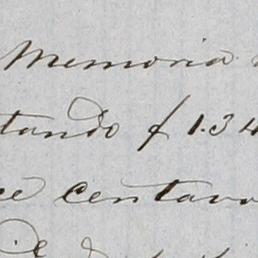 Memoria
tando $ 1.34
ce centavo